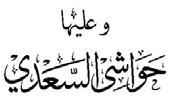 وعليها
حَوَاشِي السَّعْدِي